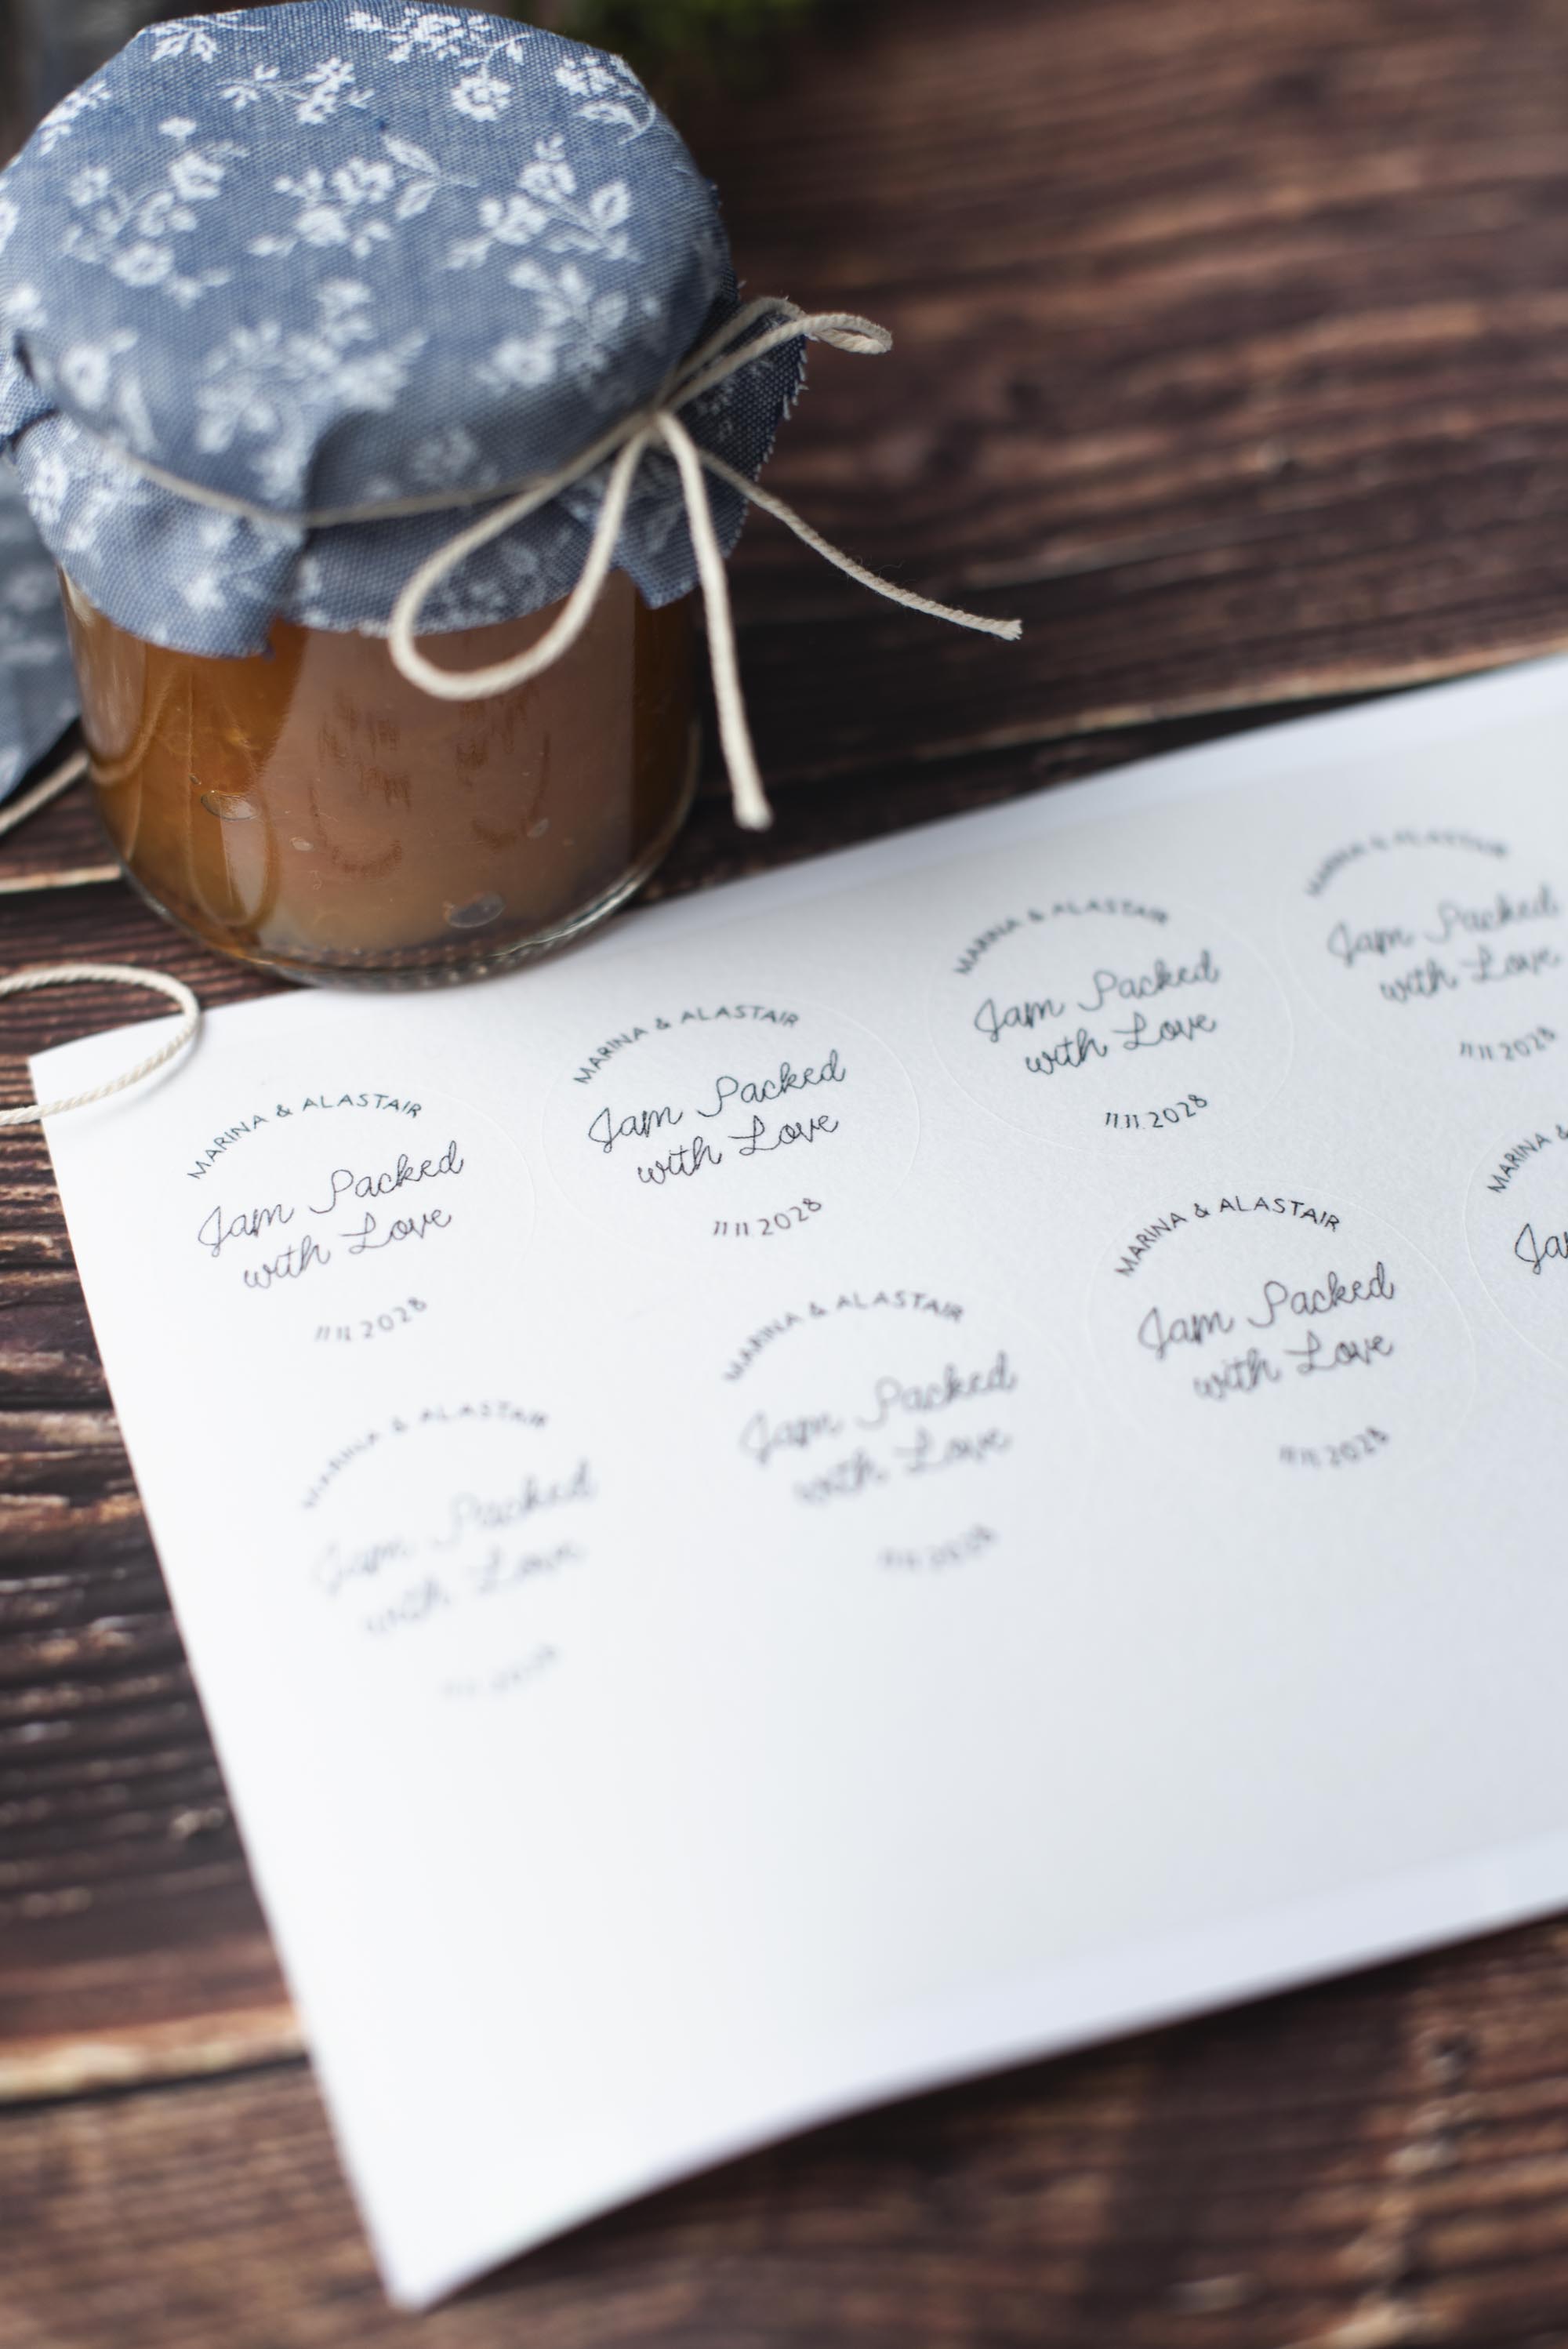 MARINA & ALASTAIR
Jam Packed
with Love
11.11.2028
MARINA & ALASTAIR
Jam Packed
with Love
11.11.2028
MARINA & ALASTAIR
Jam Packed
with Love
11.11.2028
MARINA & ALASTAIR
Jam Packed
with Love
11.11.2028
MARINA & ALASTAIR
Jam Packed
with Love
MARINA & ALASTAIR
Jam Packed
with Love
11.11.2028
MARINA & ALASTAIR
Jam Packed
with Love
11.11.2028
MARINA &
Ja